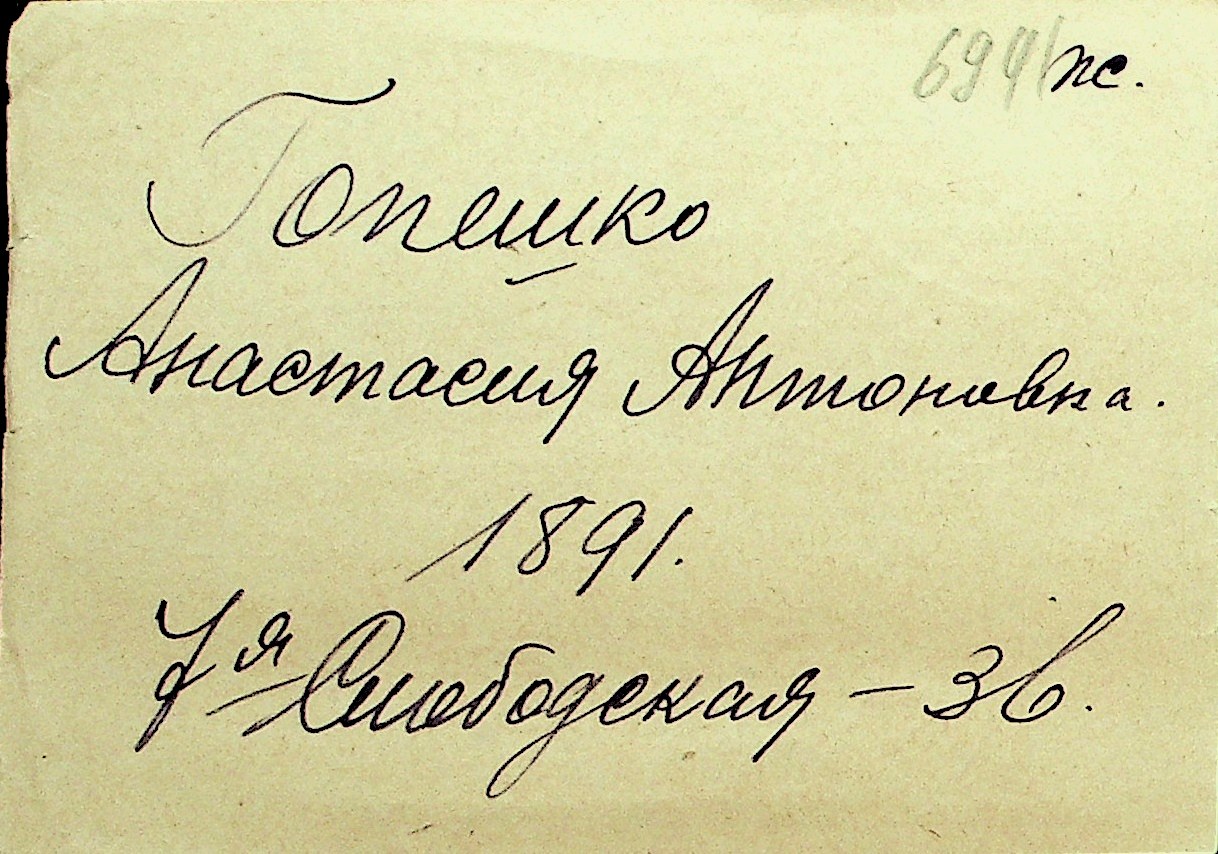 694 ж.
Гопешко
Анастасия Антоновна.
1891.
7я Слободская – 36.